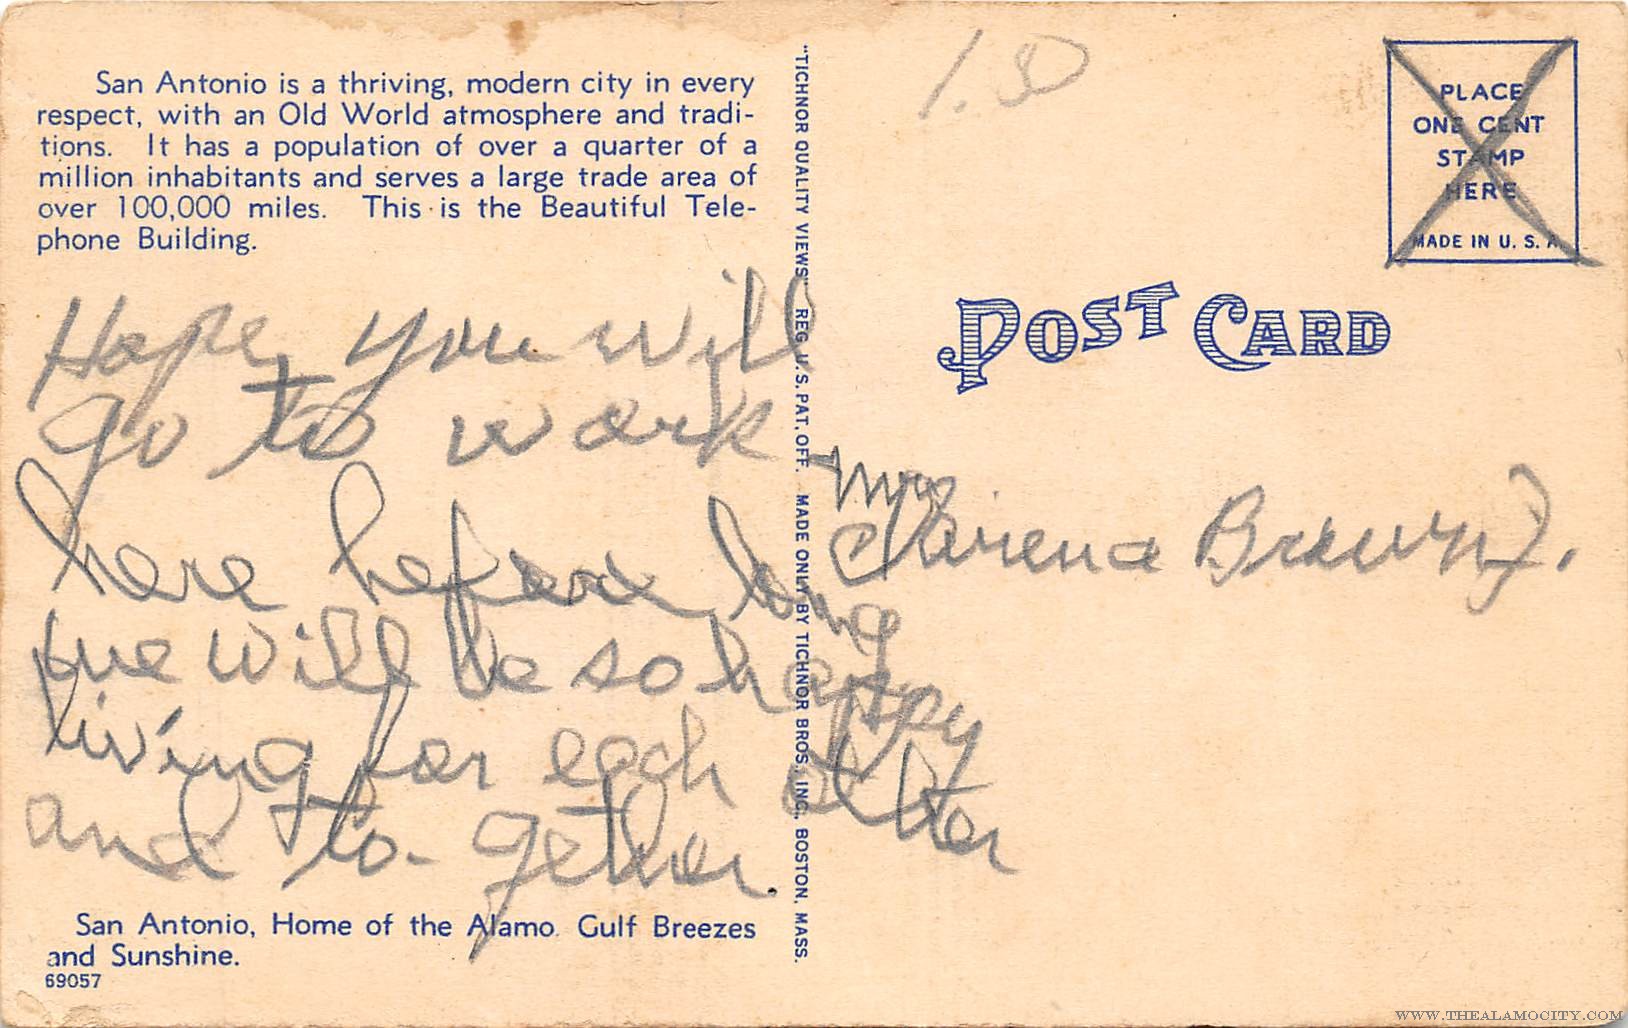 San Antonio is a thriving, modern city in every
respect, with an Old World atmosphere and tradi-
tions. It has a population of over a quarter of a
million inhabitants and serves a large trade area of
over 100,000 miles. This is the Beautiful Tele-
phone Building.
Hope you will
go to work
here before long
we will be so happy
living for each other
and to-gether.
San Antonio, Home of the Alamo. Gulf Breezes
and Sunshine.
69057
"TICHNOR QUALITY VIEWS" REG. U. S. PAT. OFF. MADE ONLY BY TICHNOR BROS., INC., BOSTON, MASS.
1.50
PLACE
ONE CENT
STAMP
HERE
MADE IN U. S. A.
POST CARD
Mrs
Brown
WWW.THEALAMOCITY.COM